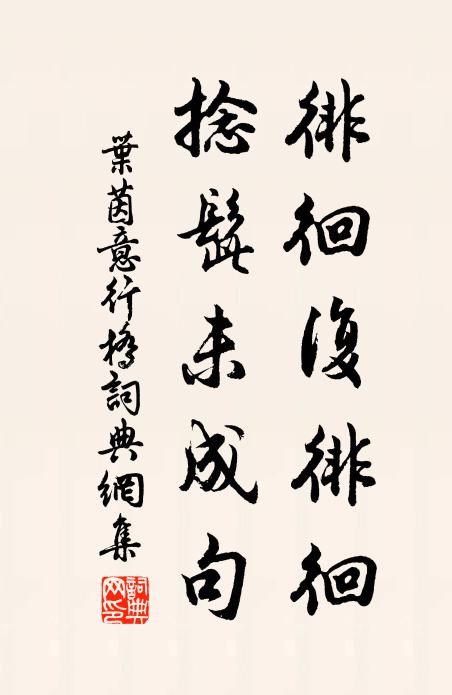 徘徊復徘徊
捻髭未成句
葉茵意行橋詞典網集
詞典網印